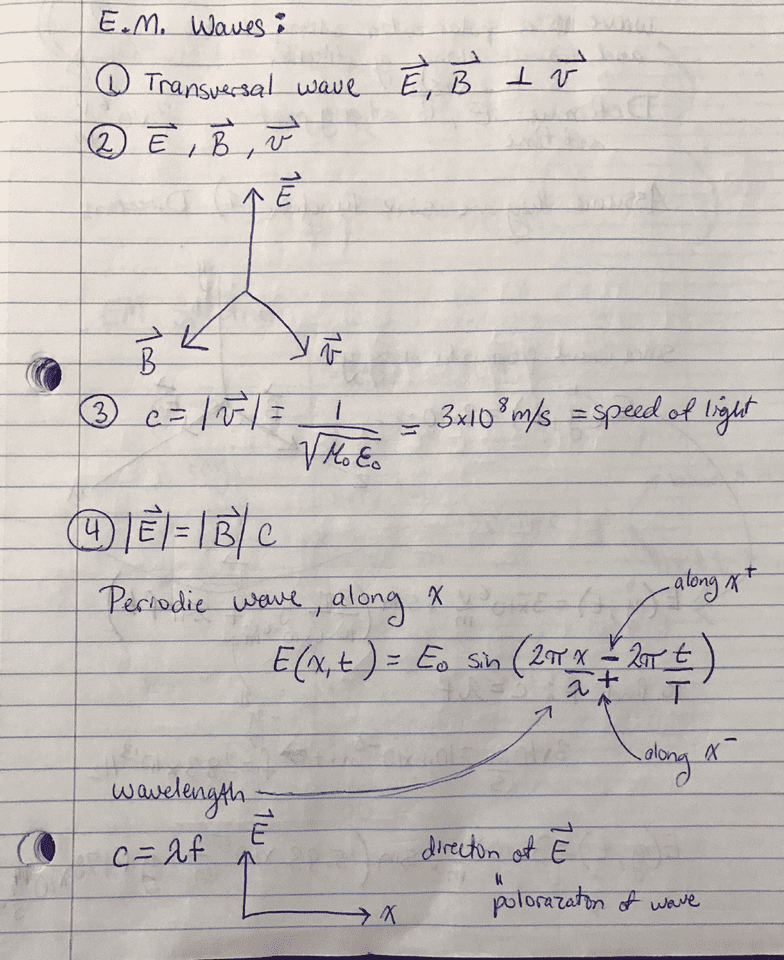 E.M. Waves:
① Transversal wave E⃗, B⃗ ⊥ v⃗
② E⃗, B⃗, v⃗
E⃗
B⃗ v⃗
③ c = |v⃗| = 1/√(μ₀ε₀) = 3x10⁸ m/s = speed of light
④ |E⃗| = |B⃗| c
along x⁺
Periodic wave, along x
E(x,t) = E₀ sin (2π x/λ ∓ 2π t/T)
along x⁻
wavelength
c = λf E⃗ directon of E⃗
"
x polorazaton of wave